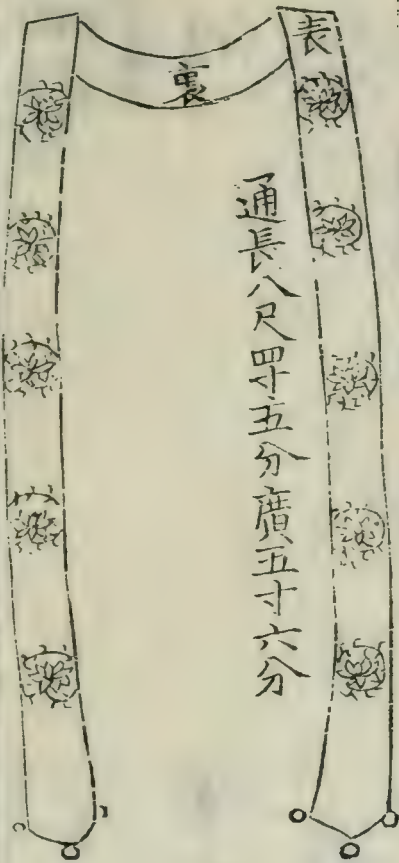 表
裏
通長八尺四寸五分廣五寸六分